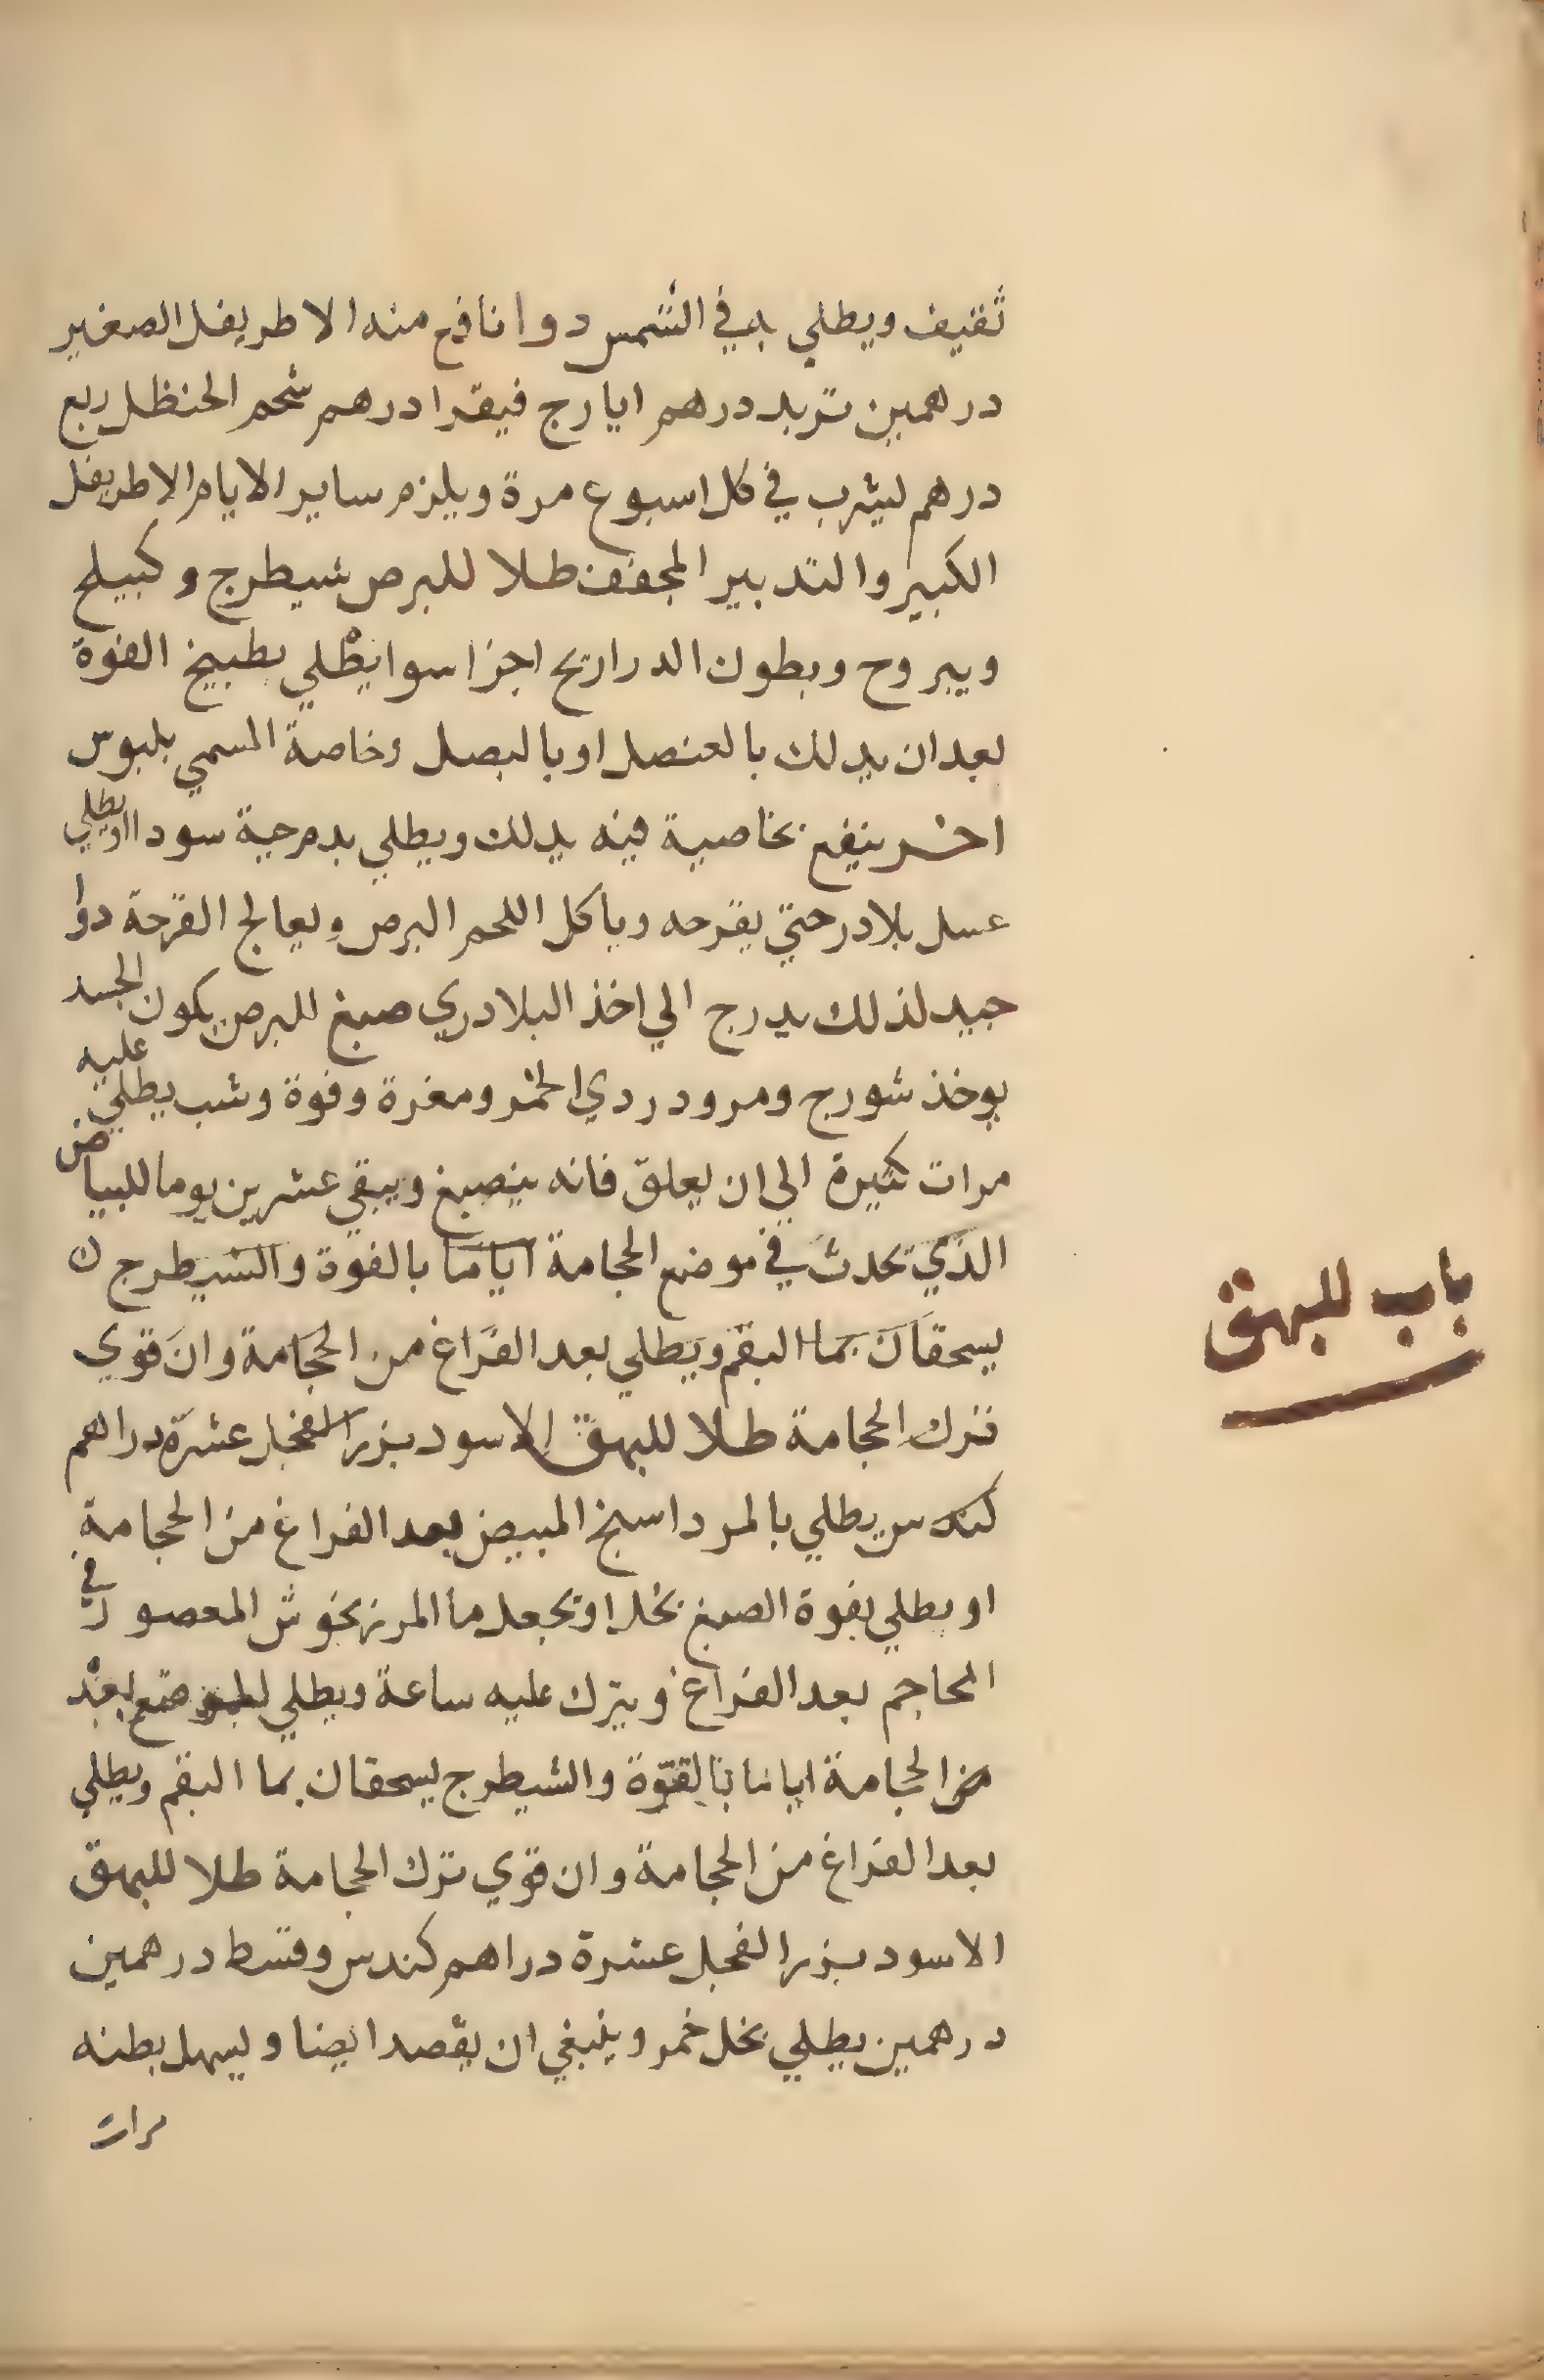 ثقيف ويطلي به في الشمس دوا نافع منه الاطريفل الصغير
درهمين تربد درهم ايارج فيقرا درهم شحم الحنظل ربع
درهم ليشرب في كل اسبوع مرة ويلزم ساير الايام الاطريفل
الكبير والتدبير المجفف طلا للبرص شيطرج وكبيلج
ويبروح وبطون الدراريح اجزا سوا يطلي بطبيخ الفوة
بعد ان يدلك بالعنصل او بالبصل وخاصة المسمي بلبوس
اخر ينفع بخاصية فيه يدلك ويطلي بدم حية سودا او يطلي
عسل بلادر حتي يقرحه وياكل اللحم البرص ويعالج القرحة دوا
جيد لذلك يدرج الي اخذ البلادري صبغ للبرص يكون الجسد
يوخذ شورج ومر ودردي الخمر ومغرة وفوة وشب يطلي عليه
مرات كثيرة الي ان يعلق فانه ينصبغ ويبقي عشرين يوما للبياض
الذي تحدث في موضع الحجامة اياما بالفوة والشيطرج ن
يسحقان بما البقم ويطلي بعد الفراغ من الحجامة وان قوي
ترك الحجامة طلا للبهق الاسود بزر الفجل عشرة دراهم
كندس يطلي بالمرداسنج المبيض بعد الفراغ من الحجامة
او يطلي بفوة الصبغ بخل او تجعل ما المرزنجوش المعصور في
المحاجم بعد الفراغ ويترك عليه ساعة ويطلي لموضع بعد
من الحجامة اياما بالقوة والشيطرج يسحقان بما البقم ويطلي
بعد الفراغ من الحجامة وان قوي ترك الحجامة طلا للبهق
الاسود بزر الفجل عشرة دراهم كندس وقسط درهمين
درهمين يطلي بخل خمر وينبغي ان يفصد ايضا ويسهل بطنه
مرات
باب للبهق